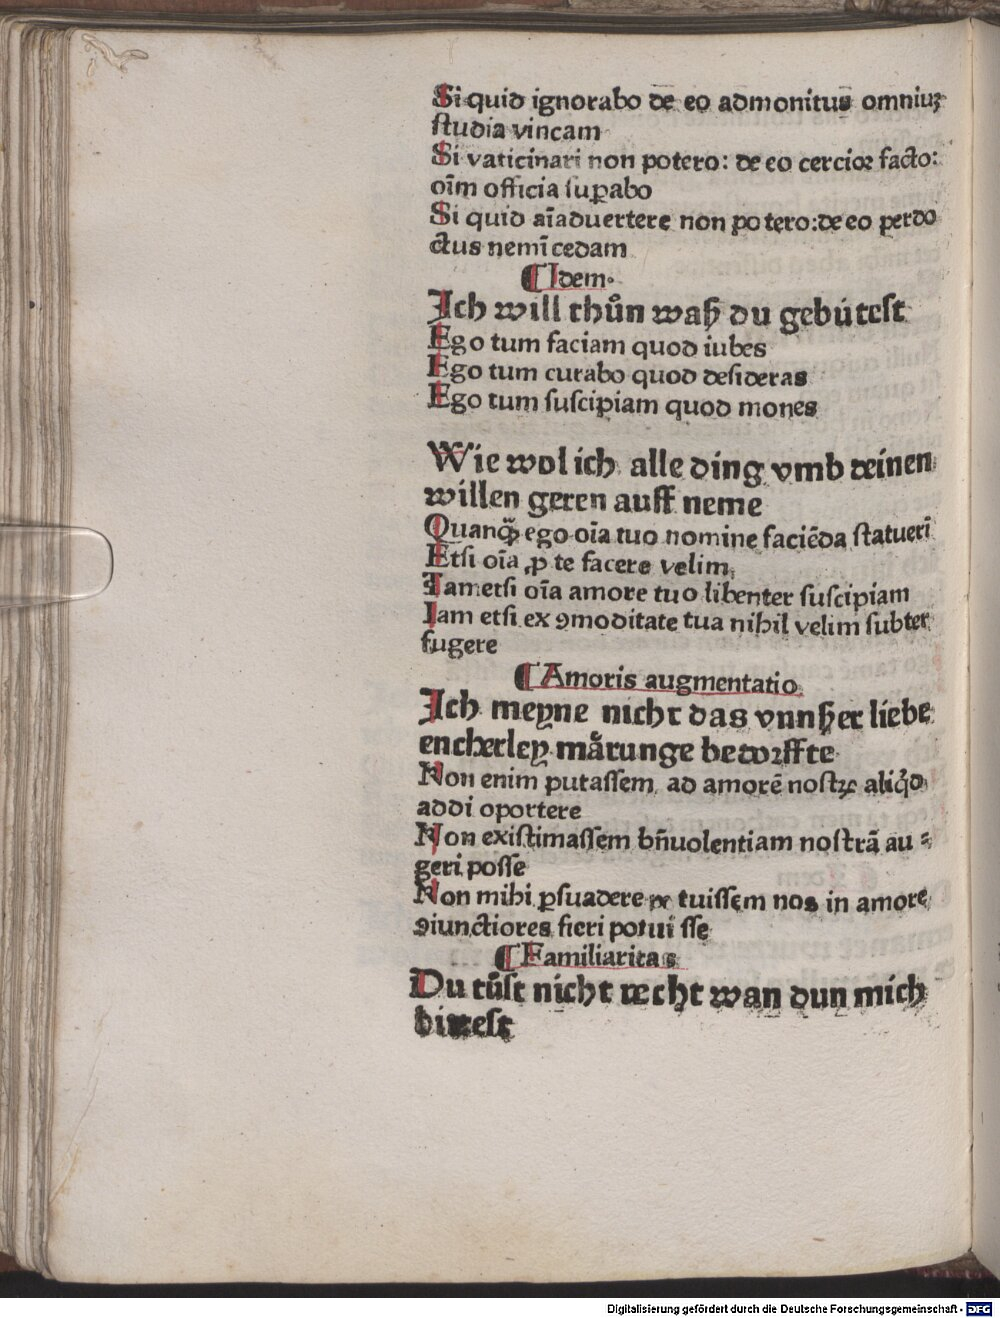 Si quid ignorabo de eo admonitus omniuꝫ
ſtudia vincam
Si vaticinari non potero: de eo cercioꝛ facto:
oīm officia ſuꝑabo
Si quid aīaduertere non potero: de eo perdo
ctus nemī cedam
¶ Idem.
Ich will thůn waß du gebútest
Ego tum faciam quod iubes
Ego tum curabo quod desideras
Ego tum ſuſcipiam quod mones
Wie wol ich alle ding vmb deinen
willen geren auff neme
Quanꝙ̃ ego oīa tuo nomine faciēda ſtatueri̅
Etſi oīa ꝓ te facere velim
Tametſi oīa amore tuo libenter ſuſcipiam
Iam etſi ex ꝯmoditate tua nihil velim ſubter
fugere
¶ Amoris augmentatio
Ich meyne nicht das vnnßer liebe
encherley mårunge bedoꝛffte
Non enim putaſſem ad amorē noſtꝝ aliq̊d
addi oportere
Non exiſtimaſſem bn̄uolentiam noſtrā au⸗
geri poſſe
Non mihi ꝑſuadere po tuiſſem nos in amore
ꝯiunctiores fieri potui ſſe
¶ Familiaritas
Du tůſt nicht recht wan dun mich
bitteſt
Digitalisierung gefördert durch die Deutsche Forschungsgemeinschaft - DFG